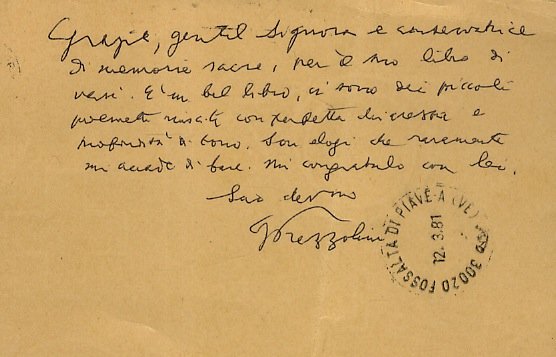 Grazie, gentil Signora e conservatrice
di memorie sacre, per il suo libro di
versi. È un bel libro, ci sono dei piccoli
poemetti riusciti con perfetta chiarezza e
profondità di tono. Son elogi che raramente
mi accade di fare. Mi congratulo con lei.
Suo dev.mo
Prezzolini
30020 FOSSALTA DI PIAVE A (VE)
12.3.81